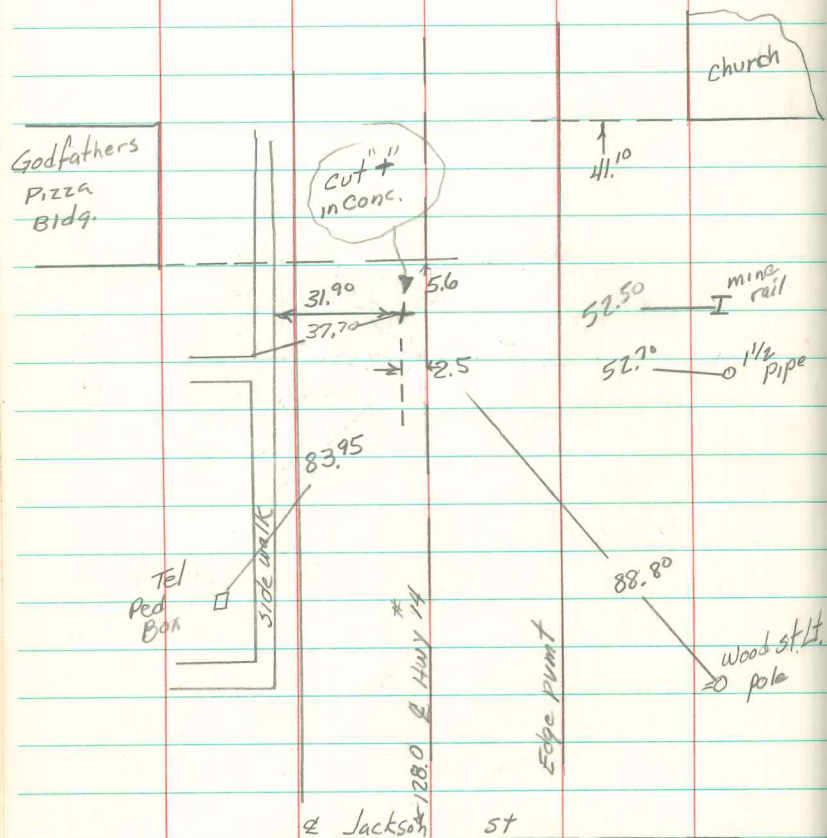 Church
Godfathers
Pizza
Bldg.
cut "+"
in Conc.
41.10
5.6
31.90
37.70
52.50
mine
rail
2.5
52.70
1 1/2
pipe
83.95
Side walk
Tel
Ped
Box
88.80
Wood st. Lt.
pole
128.0 ℄ Hwy #14
Edge Pvmt
℄ Jackson St